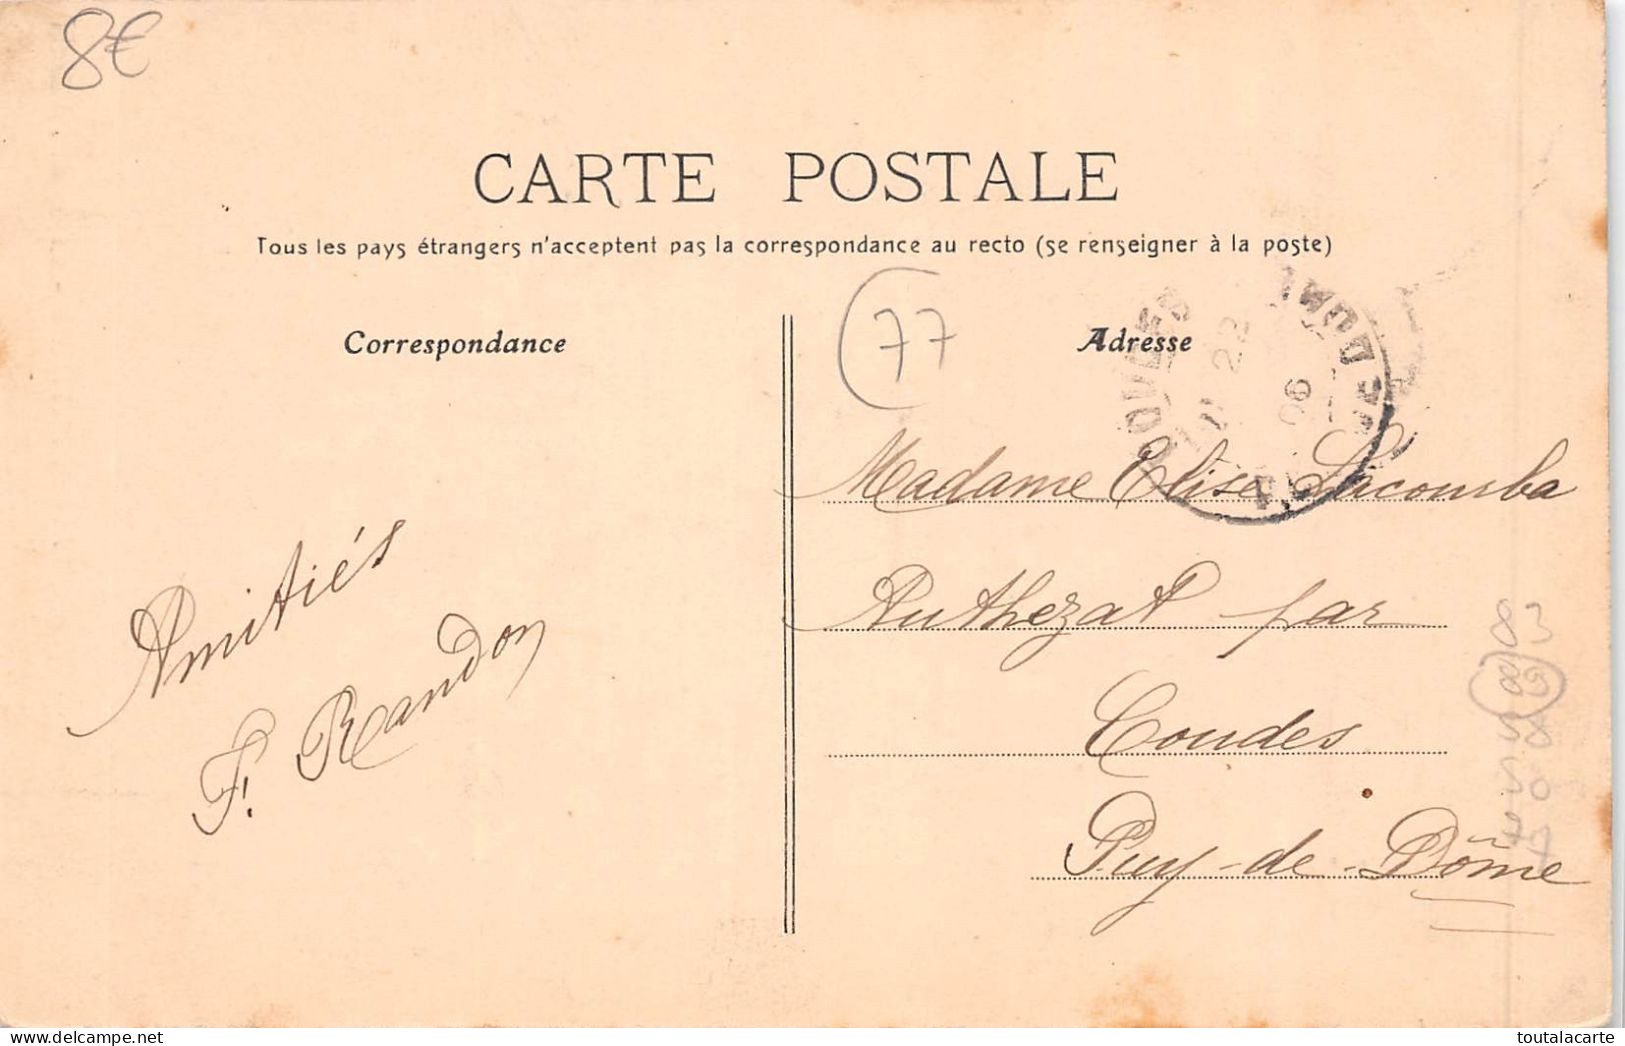 8€
CARTE POSTALE
Tous les pays étrangers n'acceptent pas la correspondance au recto (se renseigner à la poste)
Correspondance
77
Adresse
22
06
Amitiés
F. Randon
Madame Elise Lacomba
Authezat par
Coudes
Puy-de-Dôme
toutalacarte